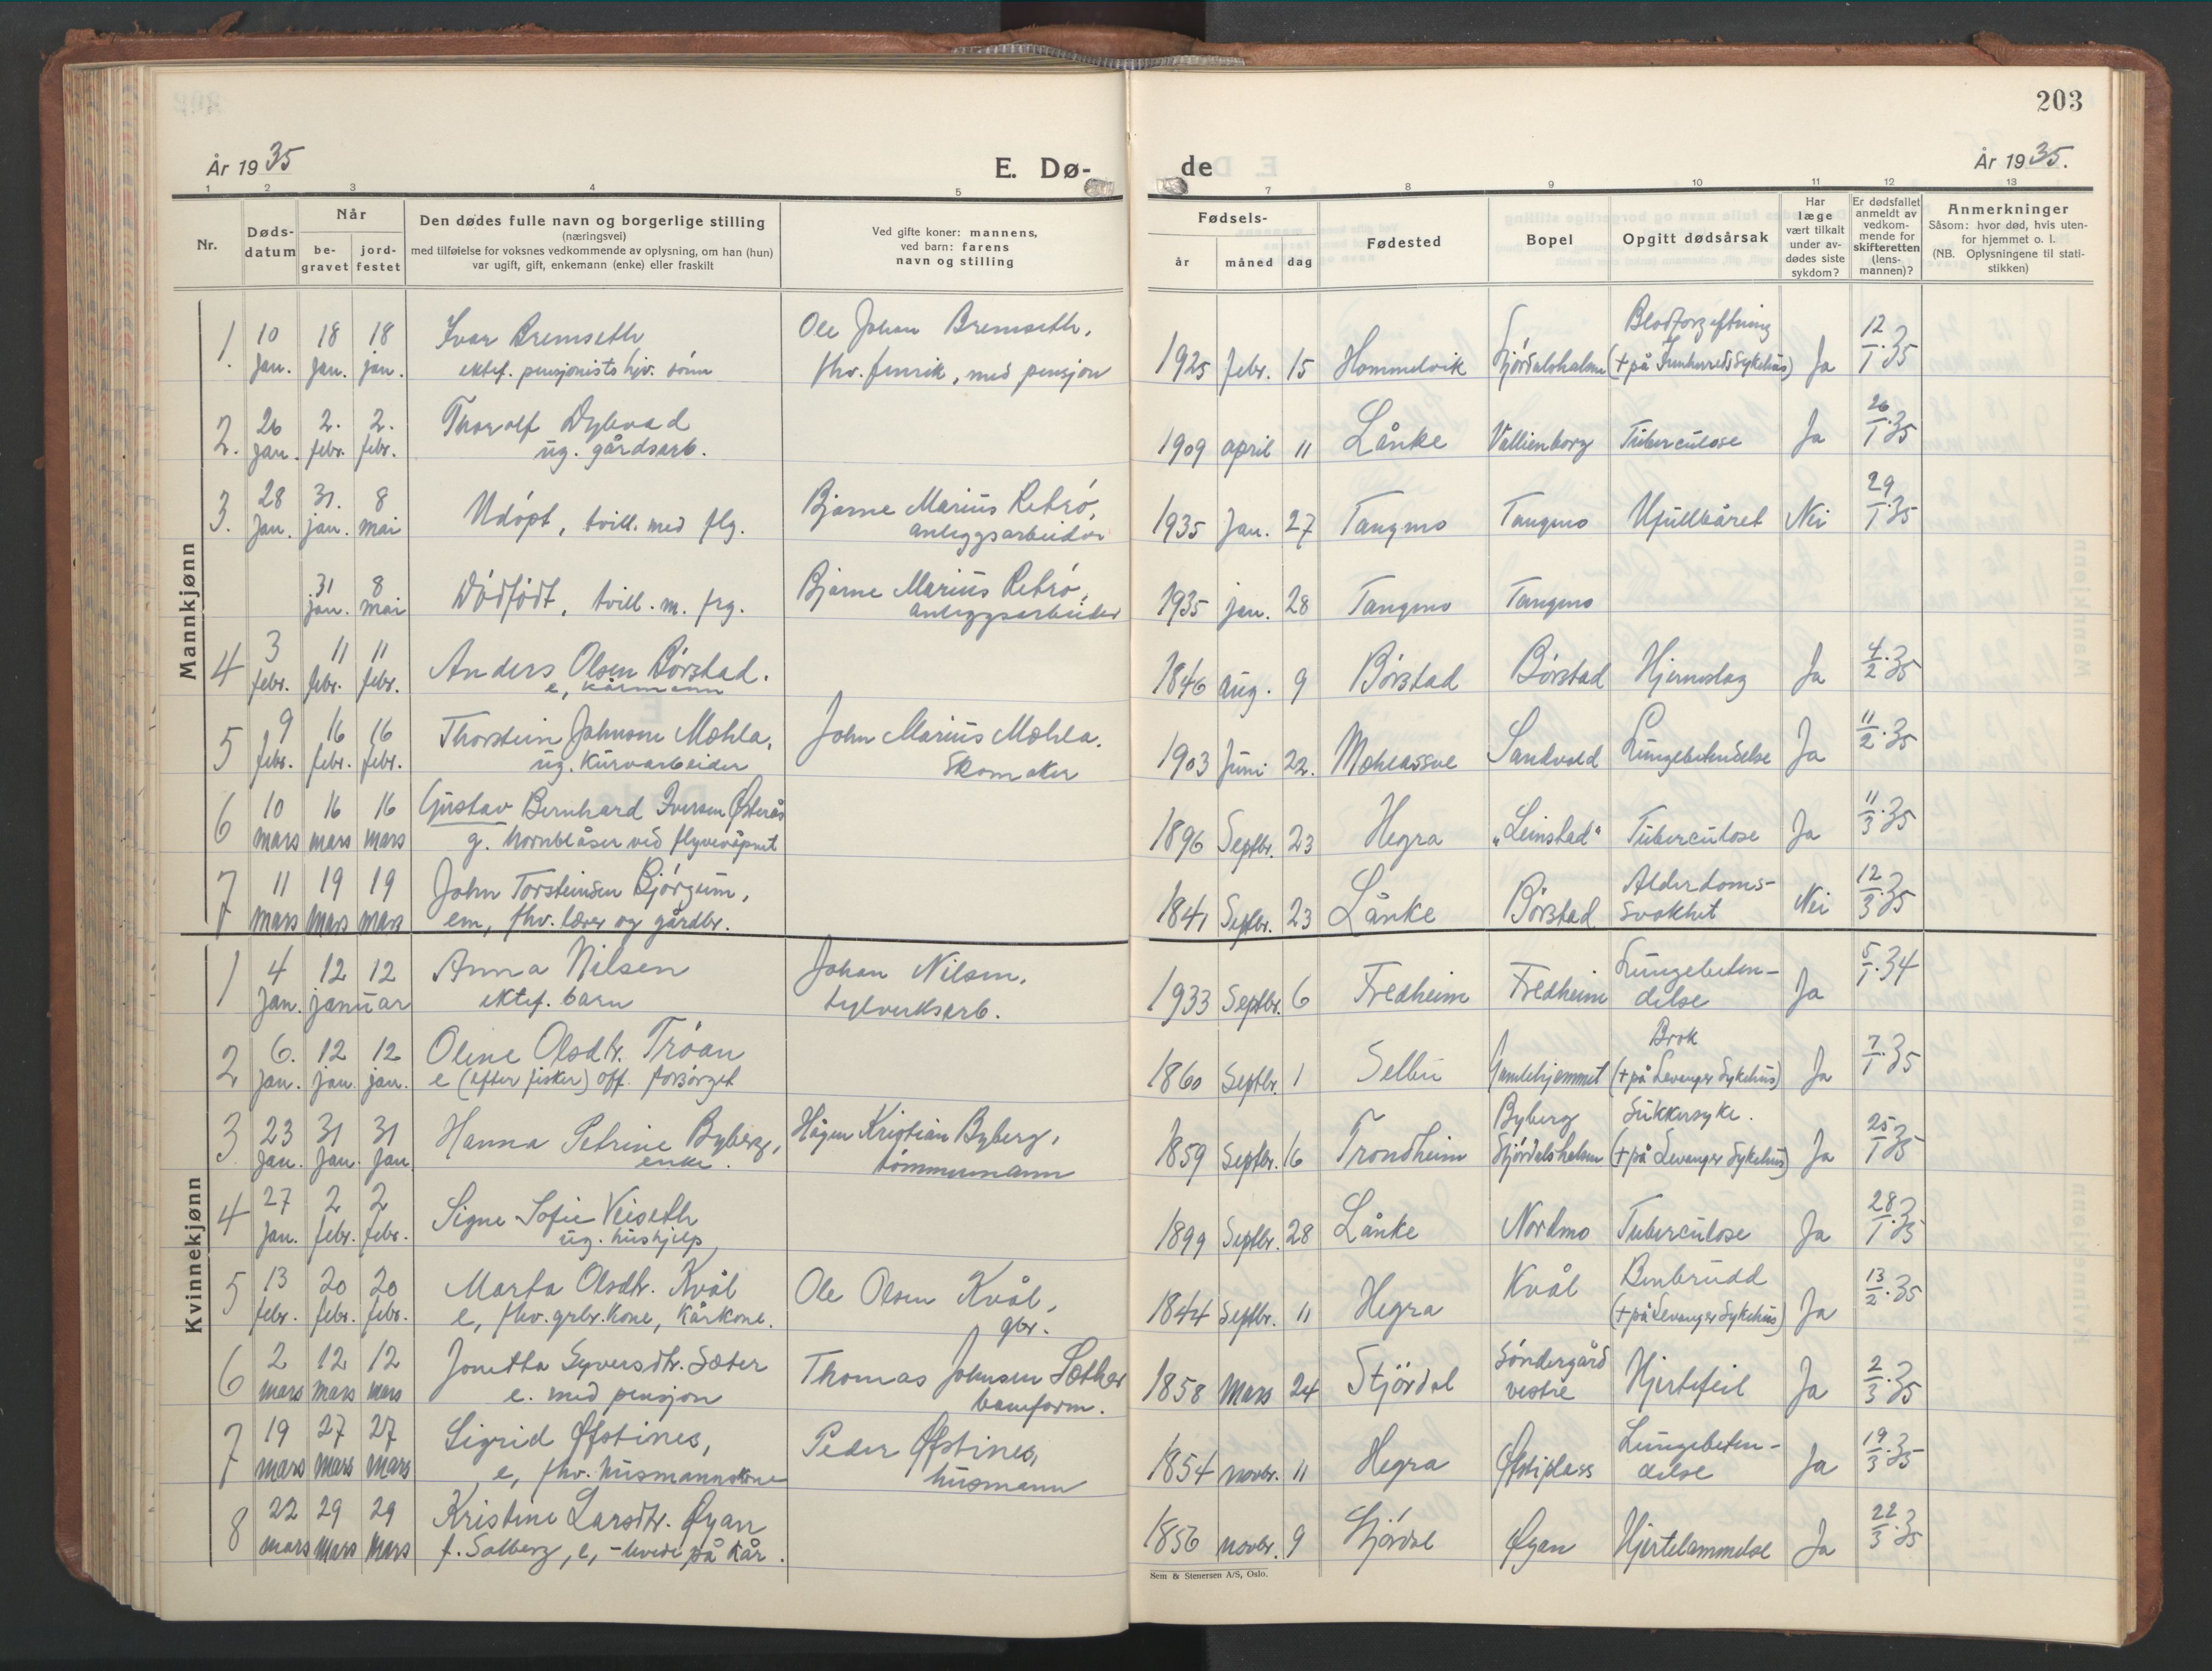 203
År 1935
E. Dø-
de
År 1935.
1 2 3 4 5 7 8 9 10 11 12 13
Nr.
Døds-
datum
Når
be-
gravet
jord-
festet
Den dødes fulle navn og borgerlige stilling
(næringsvei)
med tilføielse for voksnes vedkommende av oplysning, om han (hun)
var ugift, gift, enkemann (enke) eller fraskilt
Ved gifte koner: mannens,
ved barn: farens
navn og stilling
Fødsels-
år måned dag
Fødested
Bopel
Opgitt dødsårsak
Har
læge
vært tilkalt
under av-
dødes siste
sykdom?
Er dødsfallet
anmeldt av
vedkom-
mende for
skifteretten
(lens-
mannen)?
Anmerkninger
Såsom: hvor død, hvis uten-
for hjemmet o. l.
(NB. Oplysningene til stati-
stikken)
Mannkjønn
1. 10 18 18 Ivar Bremseth Ole Johan Bremseth, Blodforgiftning 12
jan. jan. jan. ektef. pensjonists hjv. sönn fhv. fenrik, med pensjon 1925 febr. 15 Hommelvik Stjördalshalsen (+ på Innherreds Sykehus) Ja 1.35
2. 26 2. 2. Thorolf Dybvad 26
jan. febr. febr. ug. gårdsarb. 1909 april 11 Lånke Vallienborg Tuberculose Ja 1.35
3. 28 31. 8 Udöpt, tvill. med flg. Bjarne Marius Retrö, 29
jan. jan. mai anleggsarbeider 1935 Jan. 27 Tangmo Tangmo Ufullbåret Nei 1.35
31 8 Dödfödt, tvill. m. frg. Bjarne Marius Retrö,
jan. mai anleggsarbeider 1935 jan. 28 Tangmo Tangmo
4 3 11 11 Anders Olsen Börstad. 4
febr. febr. febr. e, kårmann 1846 aug. 9 Börstad Börstad Hjerneslag Ja 2.35
5 9 16 16 Thorstein Johnsen Mæhla, John Marius Mæhla. 11
febr. febr. febr. ug. kurvarbeider Skomaker 1903 Juni 22. Sandvold Lungebetendelse Ja 2.35
6 10 16 16 Gustav Bernhard Iversen Østerås 11
mars mars mars g. hornblåser ved flyvevåpnet 1896 Septbr. 23 Hegra "Leinstad" Tuberculose Ja 3.35
7 11 19 19 John Torsteinsen Bjørgum, Alderdoms- 12
mars mars mars em, fhv. lærer og gårdbr. 1841 Septbr. 23 Lånke Börstad svakhet Nei 3.35
Kvinnekjønn
1 4 12 12 Anna Nilsen Johan Nilsen, Lungebeten- 5
jan. januar ektef. barn teglverksarb. 1933 Septbr. 6 Fredheim Fredheim delse Ja 1.34
2 6. 12 12 Oline Olsdtr. Tröan Brok 7
jan. jan. jan. e (efter fisker) off. forsörget 1860 Septbr. 1 Selbu Gamlehjemmet (+ på Levanger Sykehus) Ja 1.35
3 23 31 31 Hanna Petrine Byberg, Hågen Kristian Byberg, Byberg Sukkersyke. 25
jan. jan. jan enke. tömmermann 1859 Septbr. 16 Trondheim Stjördalshalsen (+ på Levanger Sykehus) Ja 1.35
4 27 2 2 Signe Sofie Veiseth 28
jan. febr. febr. ug. hushjelp 1899 Septbr. 28 Lånke Nordmo Tuberculose Ja 1.35
5 13 20 20 Marta Olsdtr. Kvål Ole Olsen Kvål, Kvål Benbrudd 13
febr. febr. febr. e, fhv. grbr. kone, kårkone. gbr. 1844 Septbr. 11 Hegra (+ på Levanger Sykehus) Ja 2.35
6 2 12 12 Jonetta Syversdtr. Sæter Thomas Johnsen Sæther Söndergård 2
mars mars mars e. med pensjon baneform. 1858 Mars 24 Stjördal vestre Hjertefeil Ja 3.35
7 19 27 27 Sigrid Øfstines, Peder Øfstines, Lungebeten- 19
mars mars mars e, fhv. husmannskone husmann 1854 novbr. 11 Hegra Øfstiplass delse Ja 3.35
8 22 29 29 Kristine Larsdtr. Øyan 22
mars mars mars f. Solberg, e, - levde på kår. 1856 novbr. 9 Stjördal Øyan Hjertelammelse Ja 3.35
Sem & Stenersen A/S, Oslo.